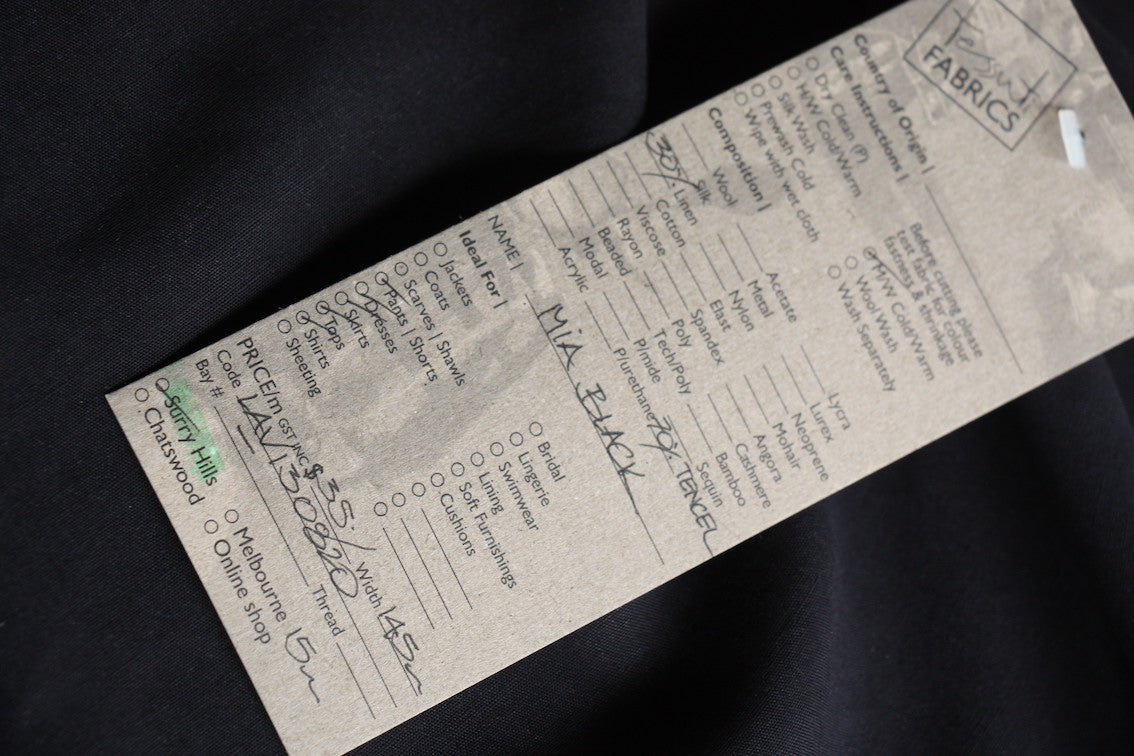 Tessuti
FABRICS
Country of Origin |
Care Instructions |
Dry Clean (P)
H/W Cold/Warm
Silk Wash
Prewash Cold
Wipe with wet cloth
Before cutting please
test fabric for colour
fastness & shrinkage
M/W Cold/Warm
Wool Wash
Wash Separately
Composition |
Wool
Silk
30% Linen
Cotton
Viscose
Rayon
Beaded
Modal
Acrylic
Acetate
Metal
Nylon
Elast
Spandex
Poly
Tech/Poly
P/mide
P/urethane
Lycra
Lurex
Neoprene
Mohair
Angora
Cashmere
Bamboo
Sequin
70% TENCEL
NAME | MIA BLACK
Ideal For |
Jackets
Coats
Scarves | Shawls
Pants | Shorts
Dresses
Skirts
Tops
Shirts
Sheeting
Bridal
Lingerie
Swimwear
Lining
Soft Furnishings
Cushions
PRICE/m GST INC $35/ Width 145
Code LAV130820
Bay # Thread
Surry Hills
Chatswood
Melbourne 15m
Online shop